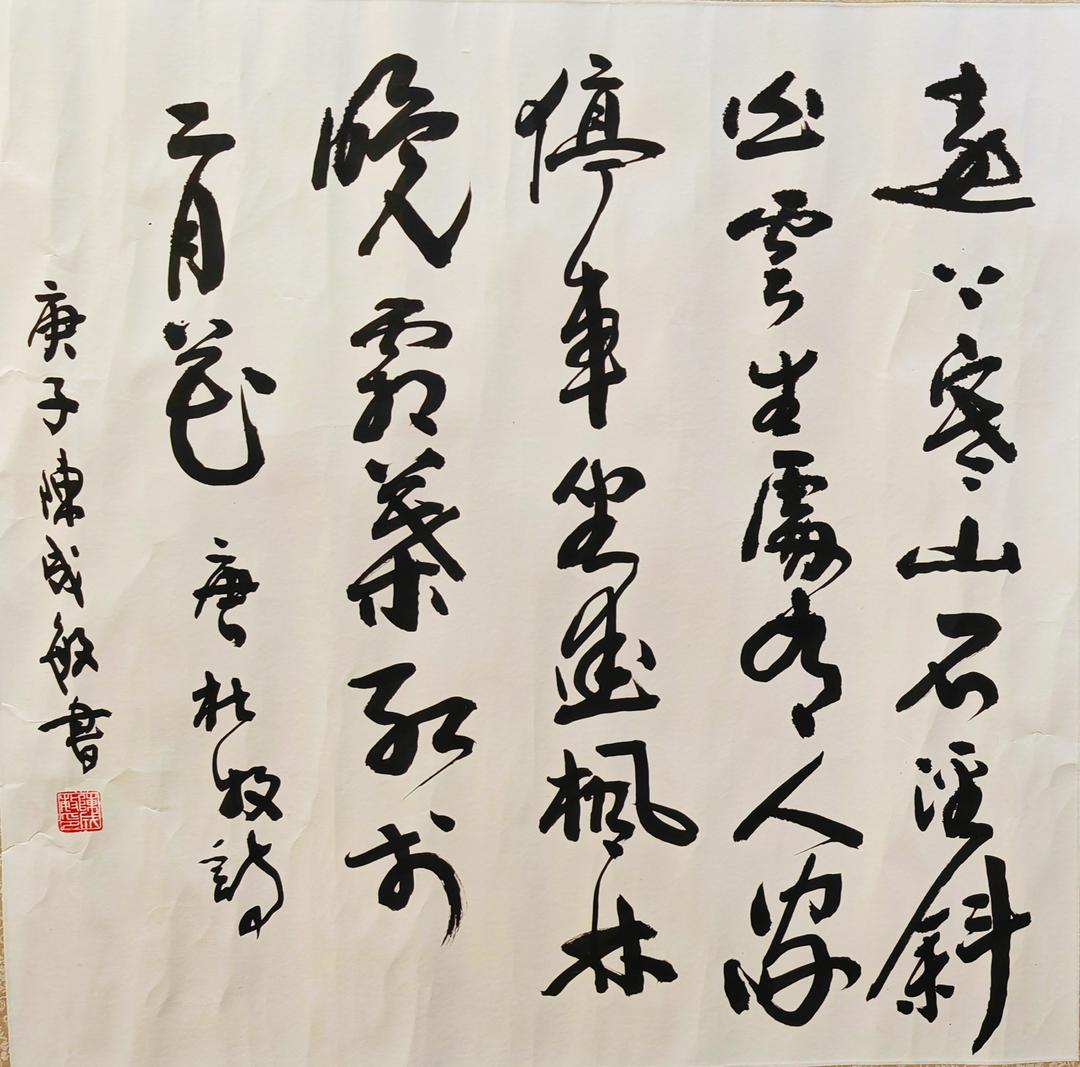 遠上寒山石徑斜
白雲生處有人家
停車坐愛楓林
晚霜葉紅於
二月花 唐杜牧詩
庚子陳成敏書
陳成敏印